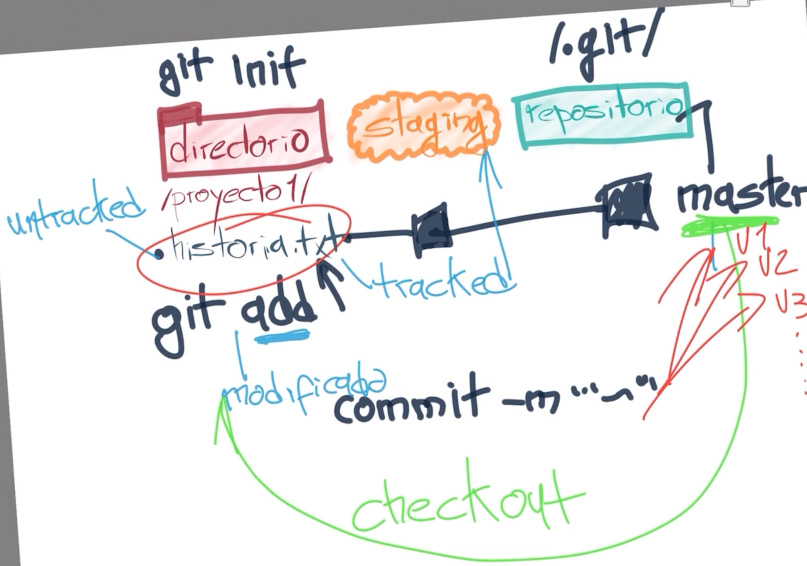 git init
/.git/
directorio
staging
repositorio
/proyecto1/
master
untracked
historia.txt
tracked
V1
V2
V3
git add
modificado
commit -m "" ~ "
checkout